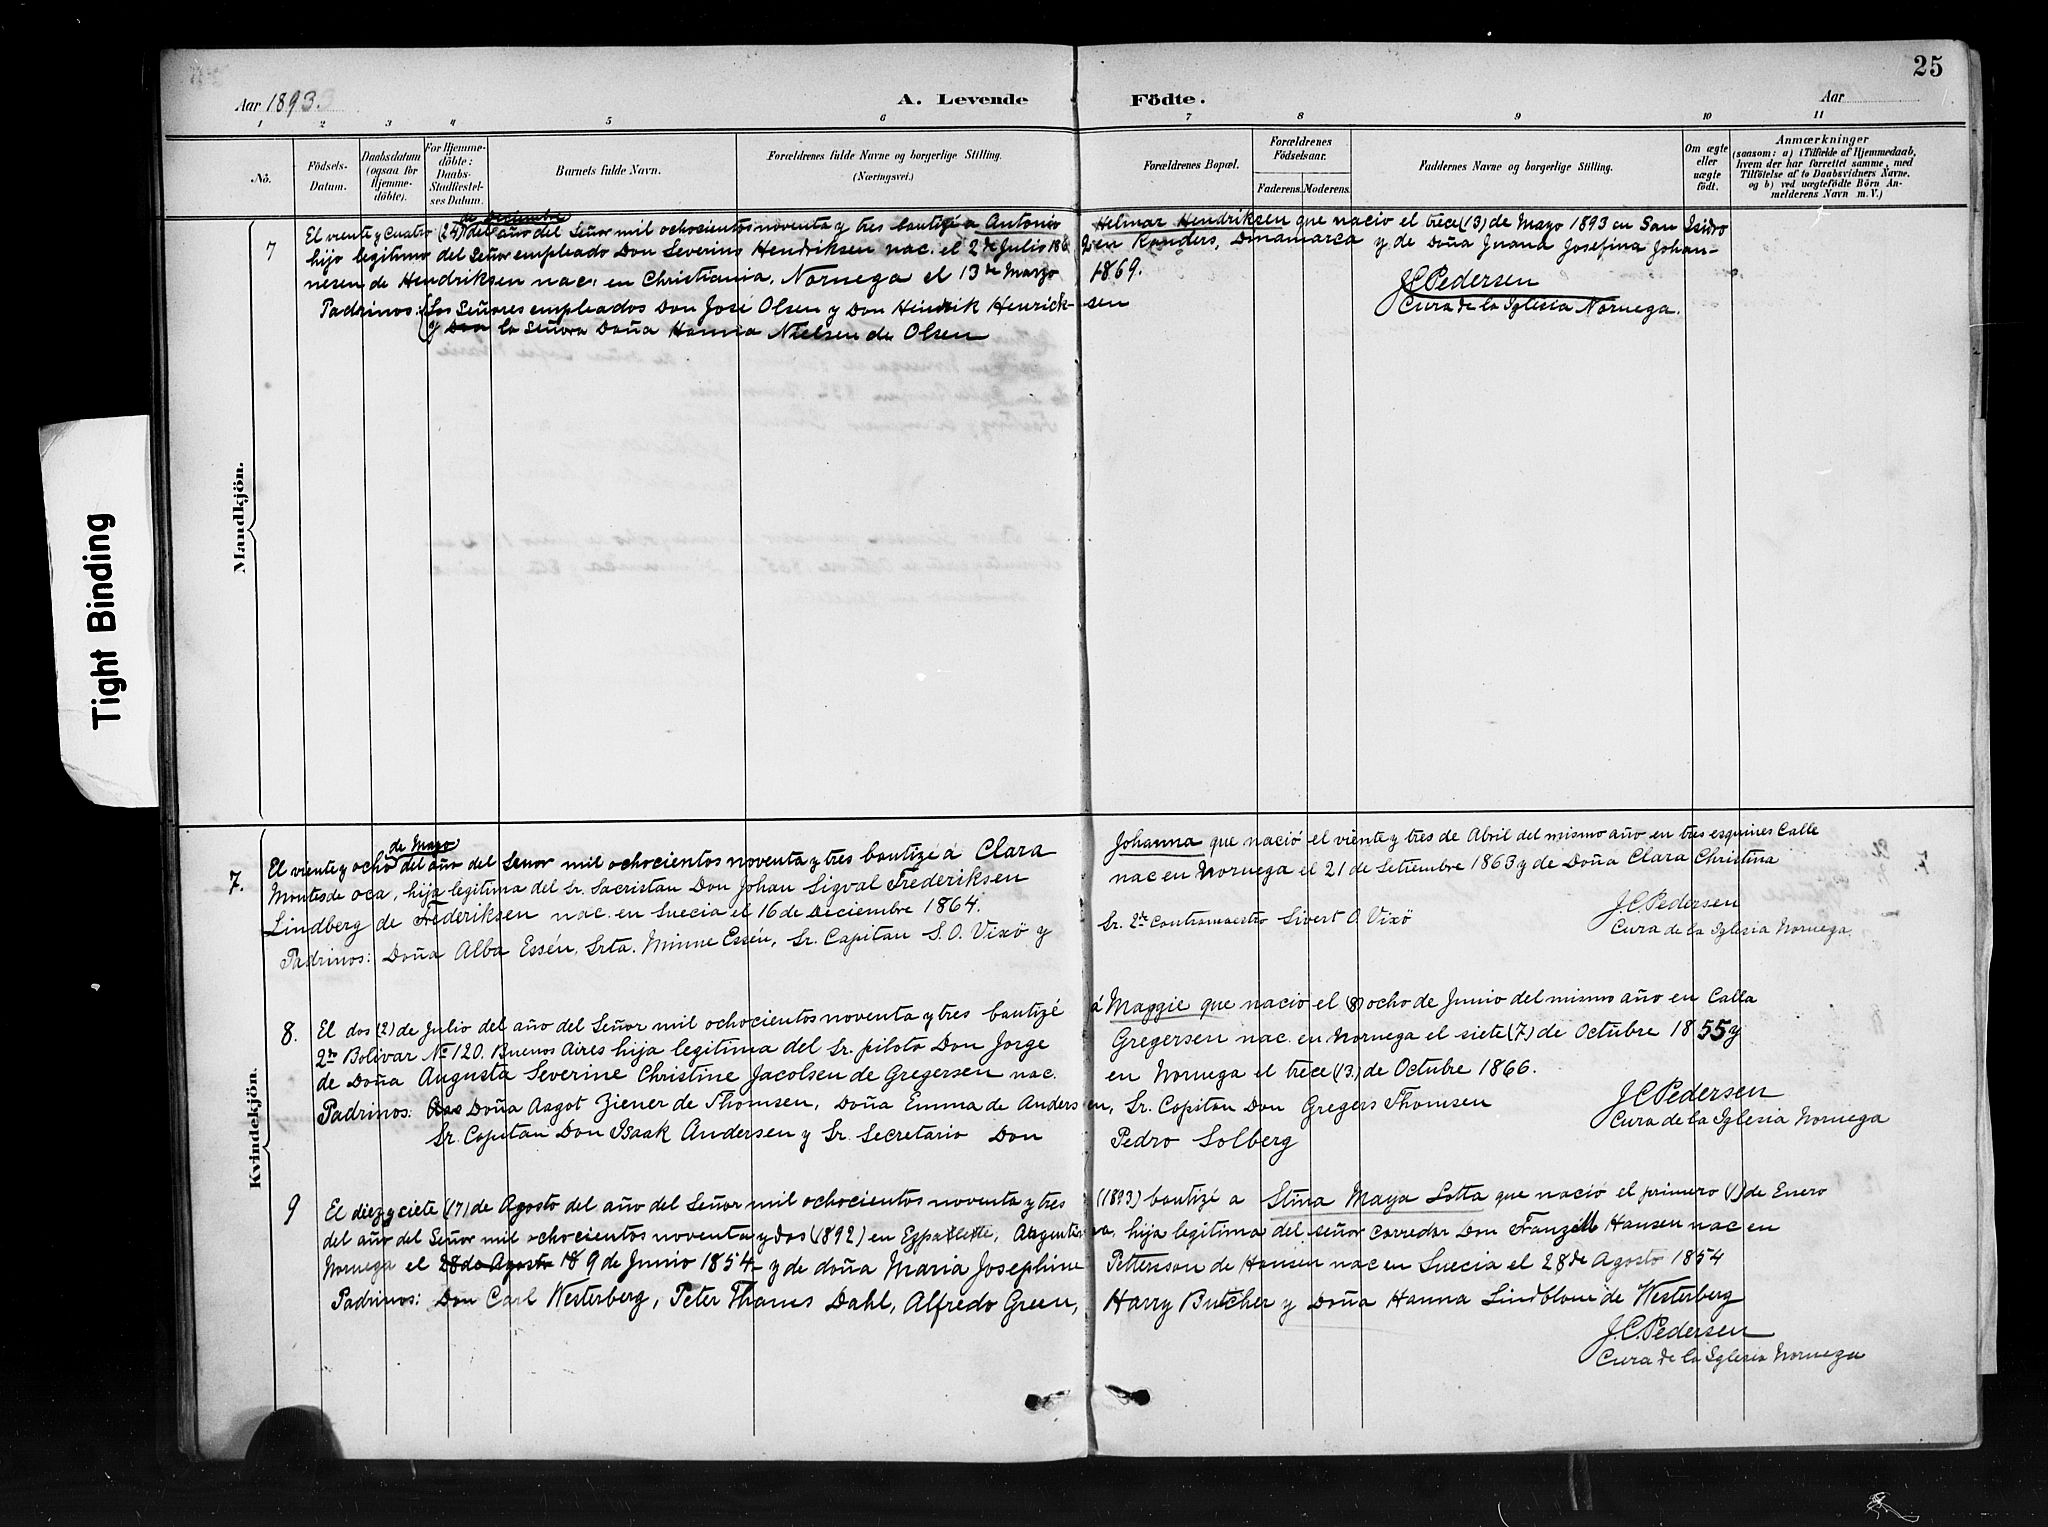 25
Aar 1893
A. Levende Födte.
Aar
1 2 3 4 5 6 7 8 9 10 11
No.
Födsels-
Datum.
Daabsdatum
(ogsaa for
Hjemme-
döbte).
For Hjemme-
döbte:
Daabs-
Stadfæstel-
ses Datum.
Barnets fulde Navn.
Forældrenes fulde Navne og borgerlige Stilling.
(Næringsvei.)
Forældrenes Bopæl.
Forældrenes
Födselsaar.
Faderens. Moderens.
Faddernes Navne og borgerlige Stilling.
Om ægte
eller
uægte
födt.
Anmærkninger
(saasom: a) i Tilfælde af Hjemmedaab,
hvem der har forrettet samme, med
Tilföielse af to Daabsvidners Navne.
og b) ved uægtefödte Börn An-
melderens Navn m. V.)
Mandkjön.
7
de Deciembre
El viente y cuatro (24) del año del Señor mil ochocientos noventa y tres bautizé a Antonio Helmar Hendriksen que nacio el trece (13) de Mayo 1893 en San Isidro
hijo legitimo del Señor empleado Don Severius Hendriksen nac. el 2 de Julio 186 2 en Randers, Dinamarca y de Doña Juana Josefina Johan-
nesen de Hendriksen nac. en Christiania, Noruega el 13 de Marzo 1869.
Padrinos: Los Señores empleados Don José Olsen y Don Hindrik Henrick- sen
y Don la Señora Doña Hanna Nielsen de Olsen
J.C. Pedersen
Cura de la Iglesia Noruega.
Kvindekjön.
7.
de Mayo
El viente y ocho del año del Senor mil ochocientos noventa y tres bautize á Clara Johanna que nació el viente y tres de Abril del mismo año en tres esquines Calle
Montes de oca, hija legitima del Sr. Sacristan Don Johan Sigval Frederiksen nac en Noruega el 21 de Settiembre 1863 y de Doña Clara Christina
Lindberg de Frederiksen nac. en Suecia el 16 de Deciembre 1864.
Padrinos: Doña Alba Essén, Srta. Minne Essén, Sr. Capitan S. O. Vixö y Sr. 2do Contramaestro Sivert O Vixö
J.C. Pedersen
Cura de la Iglesia Noruega.
8.
El dos (2) de Julio del año del Señor mil ochocientos noventa y tres bautizé á Maggie que nacio el (8) ocho de Junio del mismo año en Calla
Bolivar No 120. Buenos Aires hija legitima del Sr. piloto Don Jorge Gregersen nac. en Noruega el siete (7) de Octubre 1855 y
de Doña Augusta Severine Christine Jacolsen de Gregersen nac. en Noruega el trece (13.) de Octubre 1866.
Padrinos: Doña Aagot Ziener de Thomsen, Doña Emma de Andersen, Sr. Capitan Don Gregers Thomsen
Sr. Capitan Don Isaak Andersen y Sr. Secretario Don Pedro Solberg
J.C. Pedersen
Cura de la Iglesia Noruega
9
El diez y ciete (17) de Agosto del año del Señor mil ochocientos noventa y tres (1893) bautizé a Stina Maya Lotta que nació el primero (1) de Enero
del año del Señor mil ochocientos noventa y dos (1892) en Argentina, hija legitima del señor corredor Don Hansen nac en
Noruega el 28 de Agosto 18 9 de Junio 1854 y de doña Maria Josephine Petterson de Hansen nac en Suecia el 28 de Agosto 1854
Padrinos: Don Carl Westerberg, Peter Thoms Dahl, Alfredo Green, Harry Butcher y Doña Hanna Lindblom de Westerberg
J.C. Pedersen
Cura de la Iglesia Noruega
Tight Binding